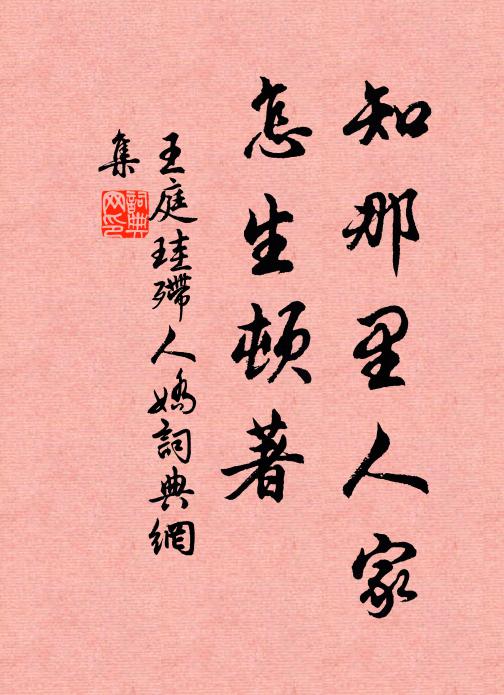 知那里人家
怎生頓著
王庭珪殢人嬌詞典網
集
詞典
網印